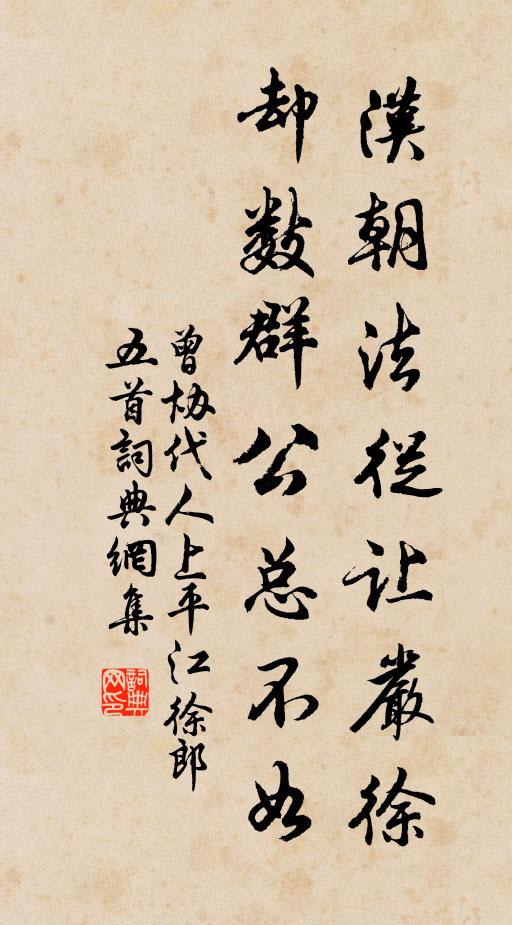 漢朝法從让嚴徐
却数群公总不如
曾协代人上平江徐郎
五首詞典網集
詞典网印